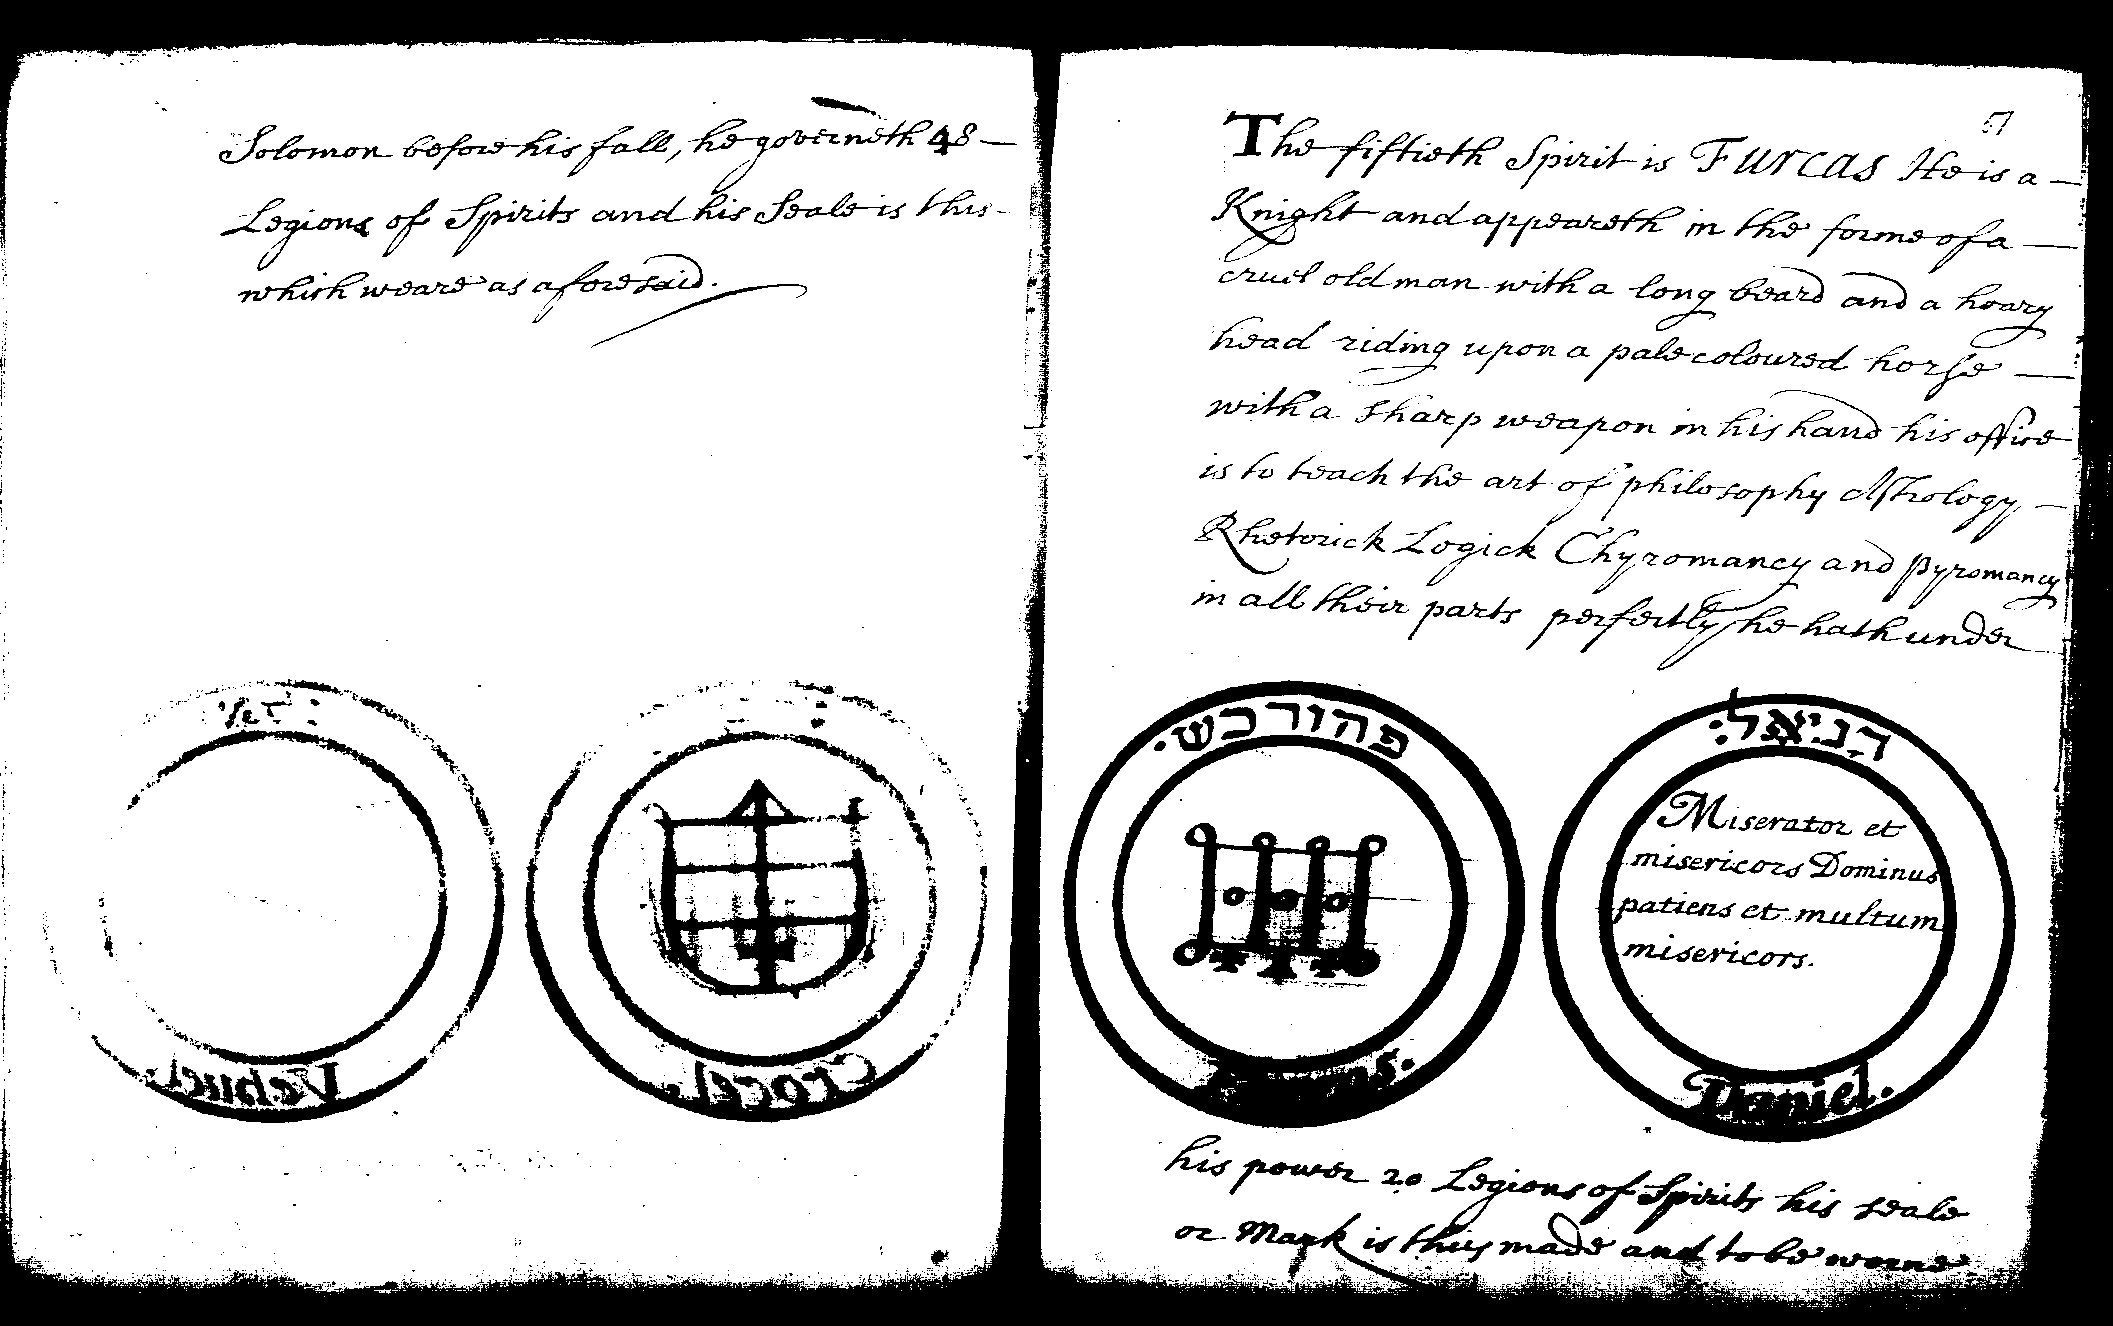 Solomon before his fall, he governeth 48
Legions of Spirits and his Seale is this
which weare as aforesaid.
Vehuel.
Crocel.
51
The fiftieth Spirit is Furcas He is a
Knight and appeareth in the forme of a
cruel old man with a long beard and a hoary
head riding upon a pale coloured horse
with a sharp weapon in his hand his office
is to teach the art of philosophy Astrology
Rhetorick Logick Chyromancy and pyromancy
in all their parts perfectly he hath under
פהורכש
דניאל:
Miserator et
misericors Dominus
patiens et multum
misericors.
Daniel.
his power 20 Legions of Spirits his seale
or Mark is thus made and to be worne